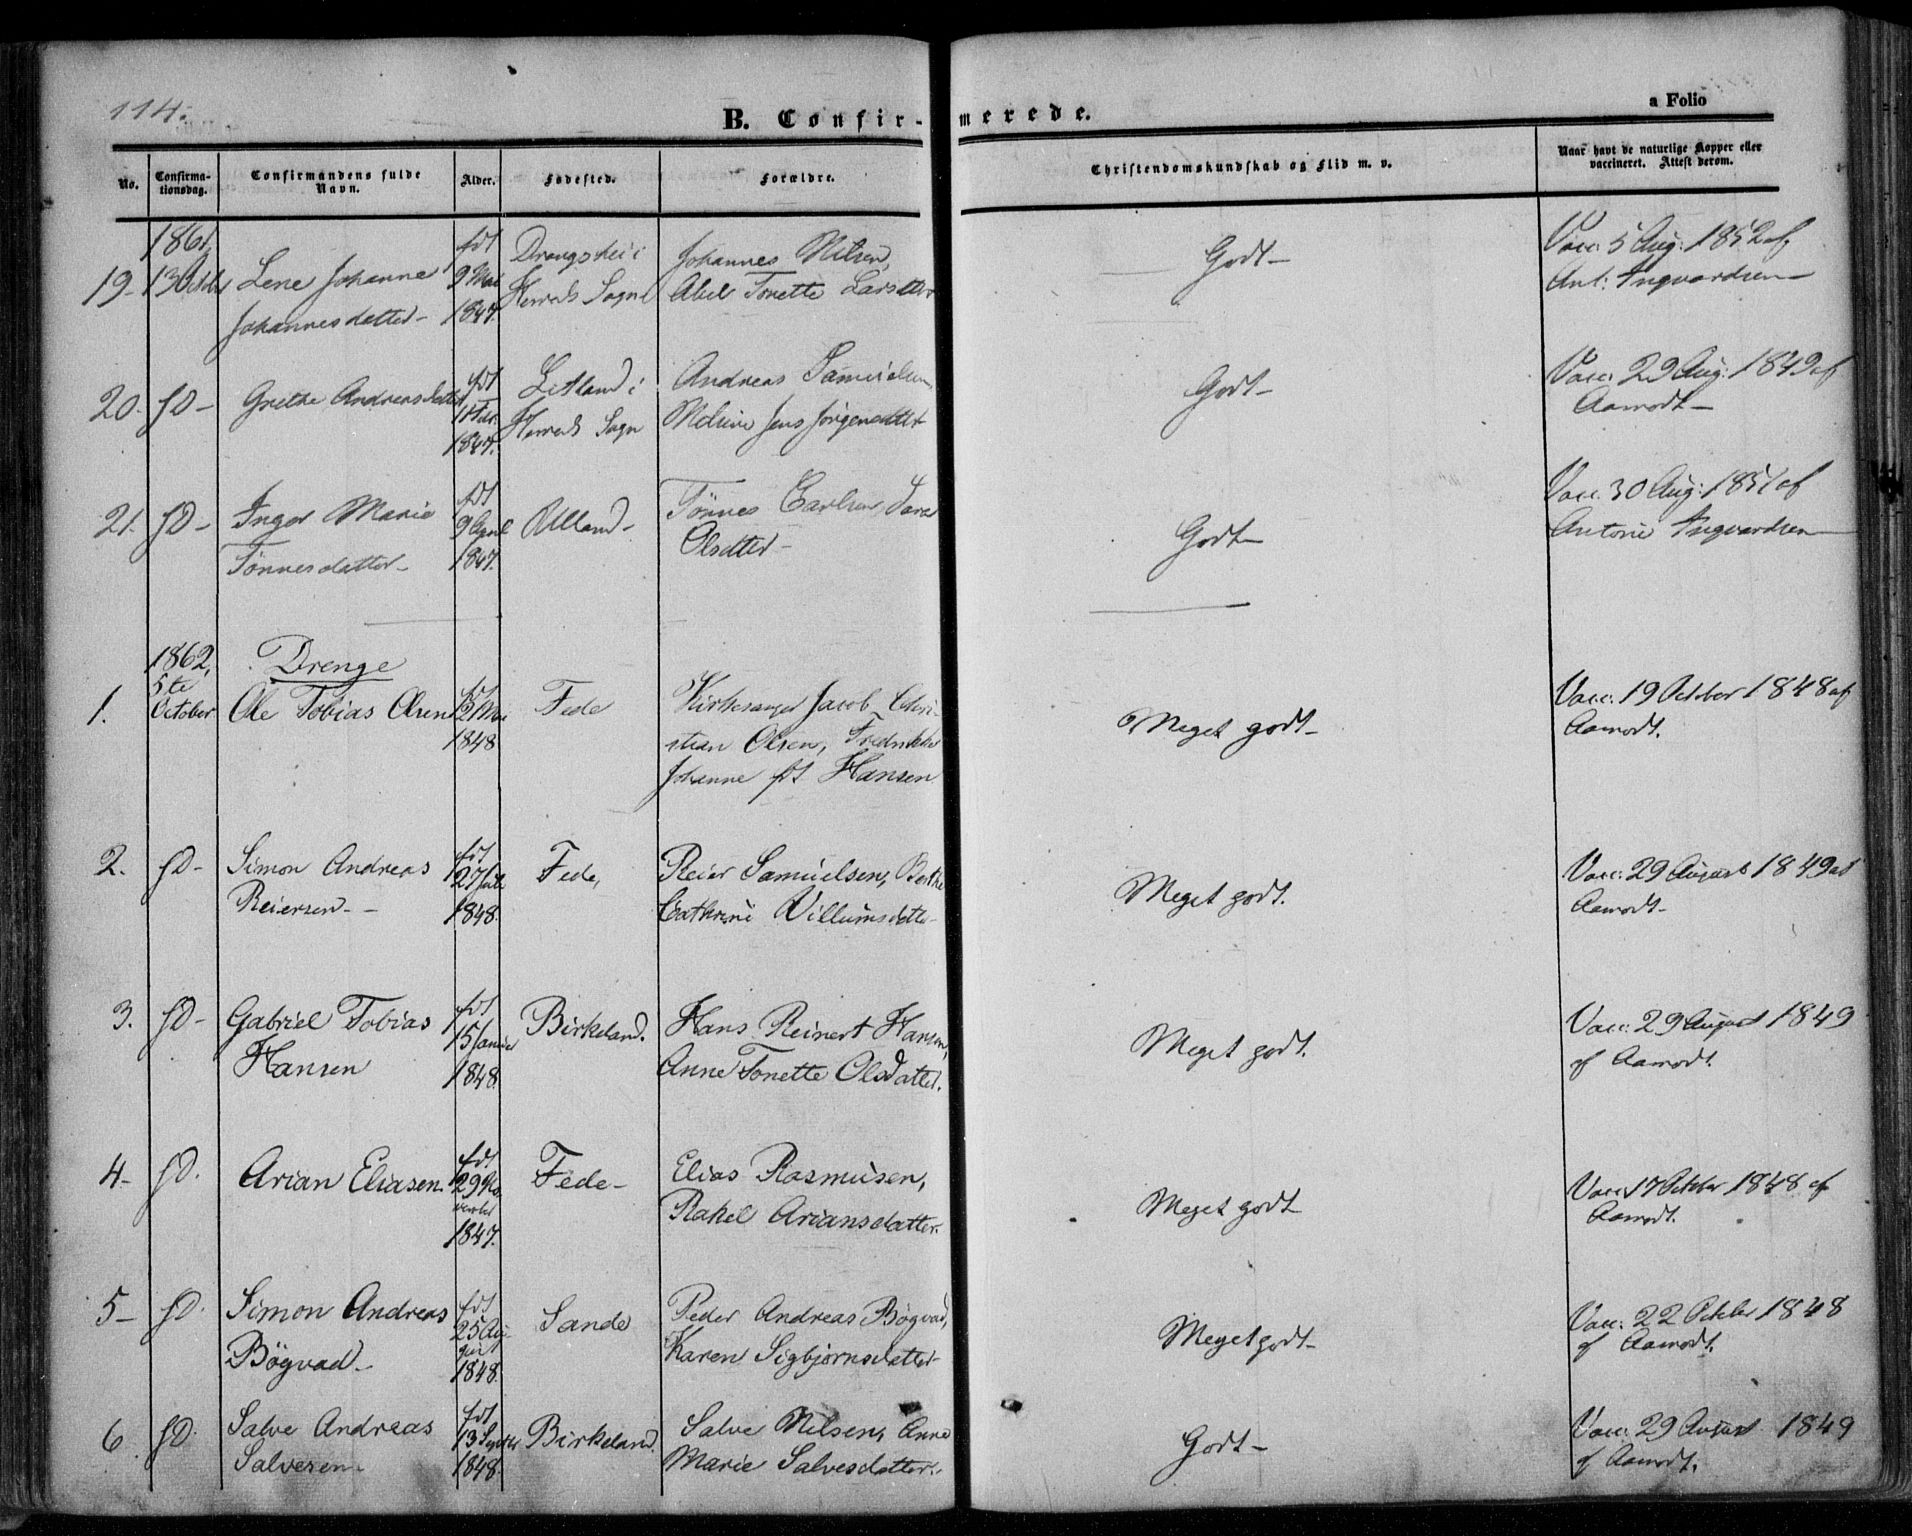 114.
B. Confirmerede.
a Folio
No.
Confirma-
tionsdag.
Confirmandens fulde
Navn.
Alder.
Fødested.
Forældre.
Christendomskundskab og Flid m. v.
Naar havt de naturlige Kopper eller
vaccineret. Attest derom.
1861,
19- 13 October Lene Johanne Johannesdatter- fdt 9 Mai 1847. i Herreds Sogn Johannes Nilsen, Abel Tonette Larsdtter Godt- Vacc. 5 Aug: 1852 af Ant: Ingvardsen-
20. do- Grethe Andreasdatter fdt 1847. i Herreds Sogn Andreas Samuelsen, Jens Jörgensdtter Godt- Vacc. 29 Aug: 1849 af Aamodt-
21. do- Inger Marie Tönnesdatter- fdt 9 April 1847. Ulland- Tönnes Carlsen, Sara Olsdtter- Godt- Vacc. 30 Aug: 1851 af Antoni Ingvardsen-
1862,
Drenge
1. 5te October Ole Tobias Olsen fdt 21 Mai 1848 Fede Kirkesanger Jacob Christian Olsen, Fredrikke Johanne fdt Hansen Meget godt- Vacc. 19 October 1848 af Aamodt.
2. do- Simon Andreas Reiersen- fdt 27 Juli 1848. Fede, Reier Samuelsen, Berthe Cathrine Villumsdatter- Meget godt. Vacc. 29 August 1849 af Aamodt-
3. do- Gabriel Tobias Hansen fdt 15 Januar 1848. Birkeland. Hans Reinert Hansen, Anne Tonette Olsdatter. Meget godt. Vacc. 29 August 1849 af Aamodt.
4- do. Arian Eliasen. fdt 29 November 1847. Fede- Elias Rasmusen, Rakel Ariansdatter. Meget godt- Vacc. 17 October 1848 af Aamodt.
5- do. Simon Andreas Bögvad- fdt 25 August 1848. Sande Peder Andreas Bögvad, Karen Sigbjørnsdatter- Meget godt- Vacc. 22 October 1848 af Aamodt.
6 do. Salve Andreas Salvesen- fdt 13 Septbr 1848. Birkeland. Salve Nilsen, Anne Marie Salvesdatter. Godt- Vacc. 29 August 1849 af Aamodt.